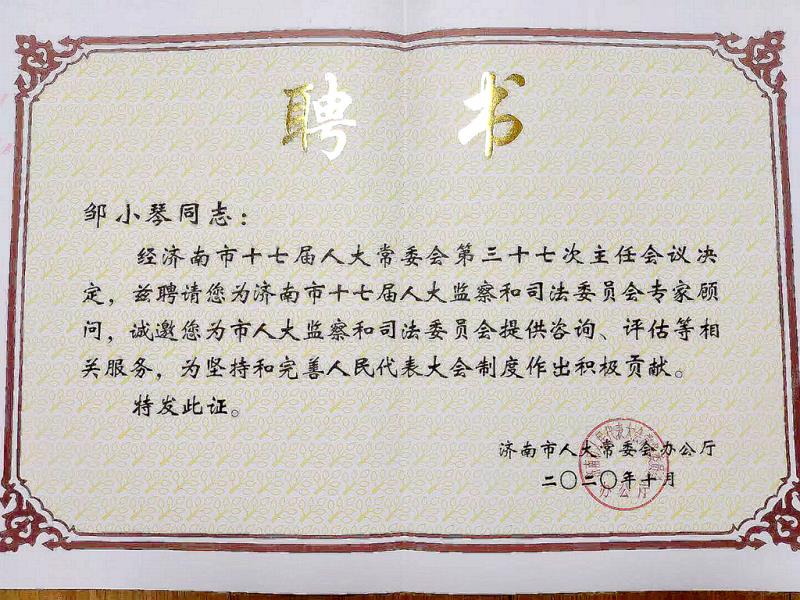 聘书
邹小琴同志：
经济南市十七届人大常委会第三十七次主任会议决
定，兹聘请您为济南市十七届人大监察和司法委员会专家顾
问，诚邀您为市人大监察和司法委员会提供咨询、评估等相
关服务，为坚持和完善人民代表大会制度作出积极贡献。
特发此证。
济南市人大常委会办公厅
二〇二〇年十月
济南市人民代表大会常务委员会
办公厅